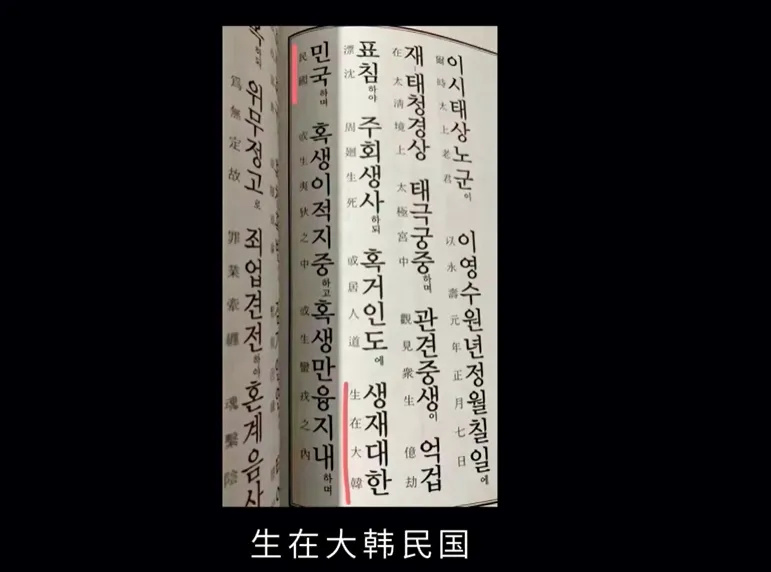 이시태상노군이 이영수원년정월칠일에
爾時太上老君 以永壽元年正月七日
재태청경상 태극궁중하며 관견중생이 억겁
在太淸境上 太極宮中 觀見衆生 億劫
표침하야 주회생사하되 혹거인도에 생재대한
漂沈 周廻生死 或居人道 生在大韓
민국하며 혹생이적지중하고 혹생만융지내하며
民國 或生夷狄之中 或生蠻戎之內
하되 위무정고로 죄업견전하야 혼계음사
爲無定故 罪業牽纏 魂繫陰
生在大韩民国